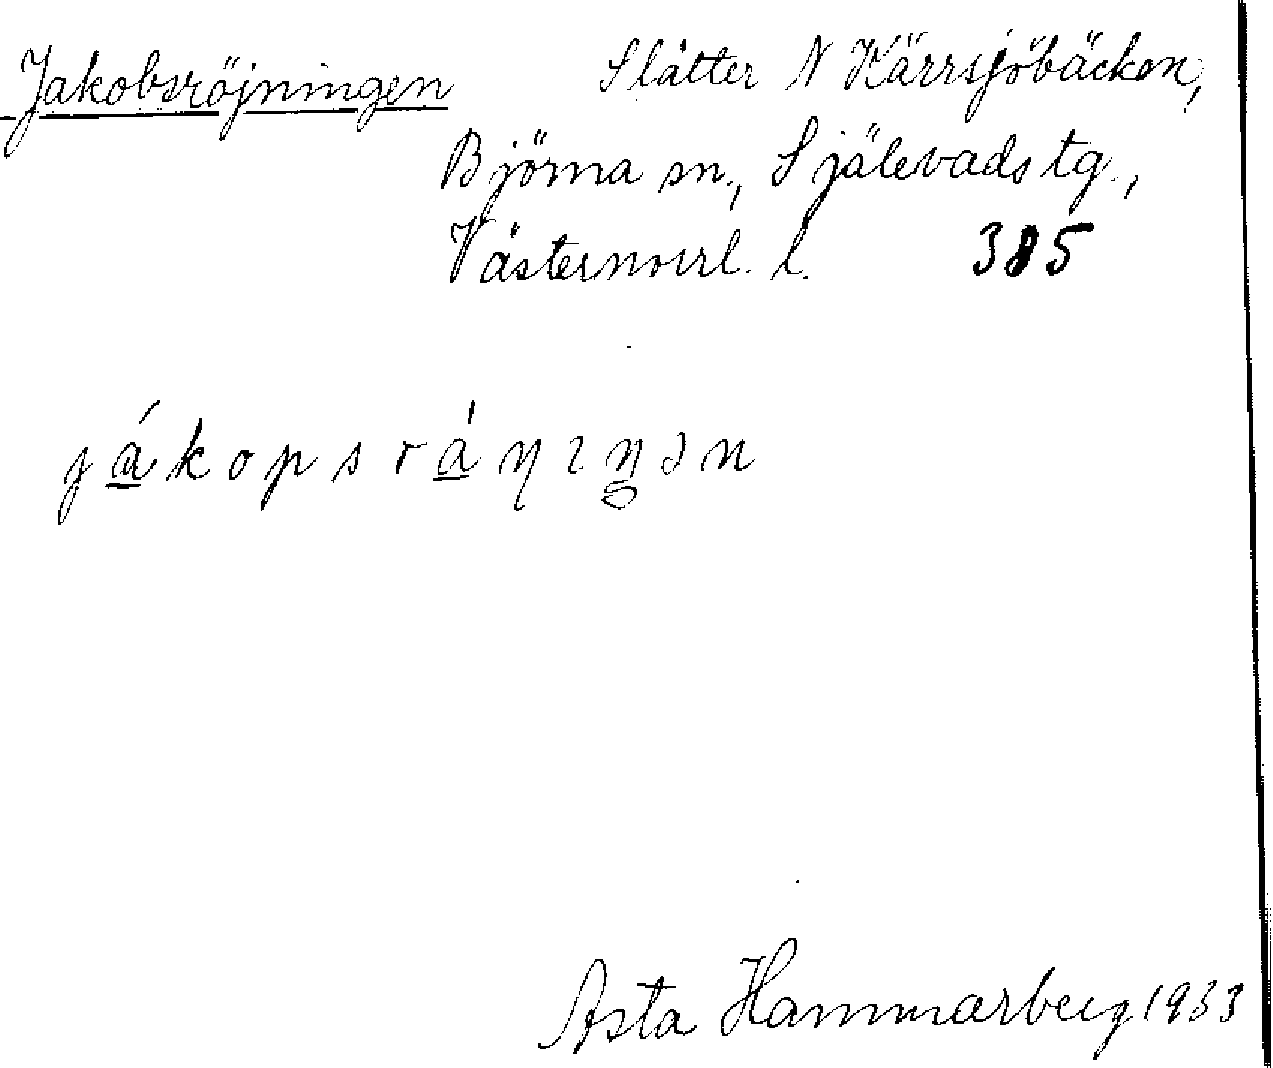 Jakobsröjningen Slåtter N Kärrsjöbäcken,
Björna sn., Själevads tg.,
Västernorrl. l. 385
Asta Hammarberg 1933